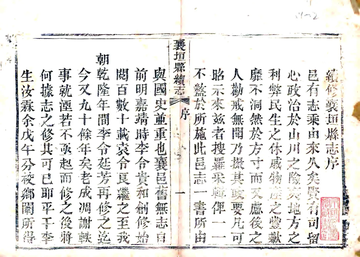 續修襄垣縣志序
邑有志乘由來久矣官有司留
心政治於山川之險夷地方之
利弊民生之休戚物產之豐嗇
靡不洞然於方寸而又慮後之
人勸戒無聞乃撮其政要凡可
昭示來茲者搜羅采輯傳一一
不啻於所施此邑志一書所由
襄垣縣續志 序 一
與國史並重也襄邑舊無志自
前明嘉靖時李令貴和創修始
閱百數十載袁令良羅之至我
朝乾隆年間李令廷芳再修之迄
今又九十餘年矣老成凋謝軼
事就湮若不亟起而修之後將
何據志之修其可已乎平李
生汝霖余戊午分校鄉闈所得